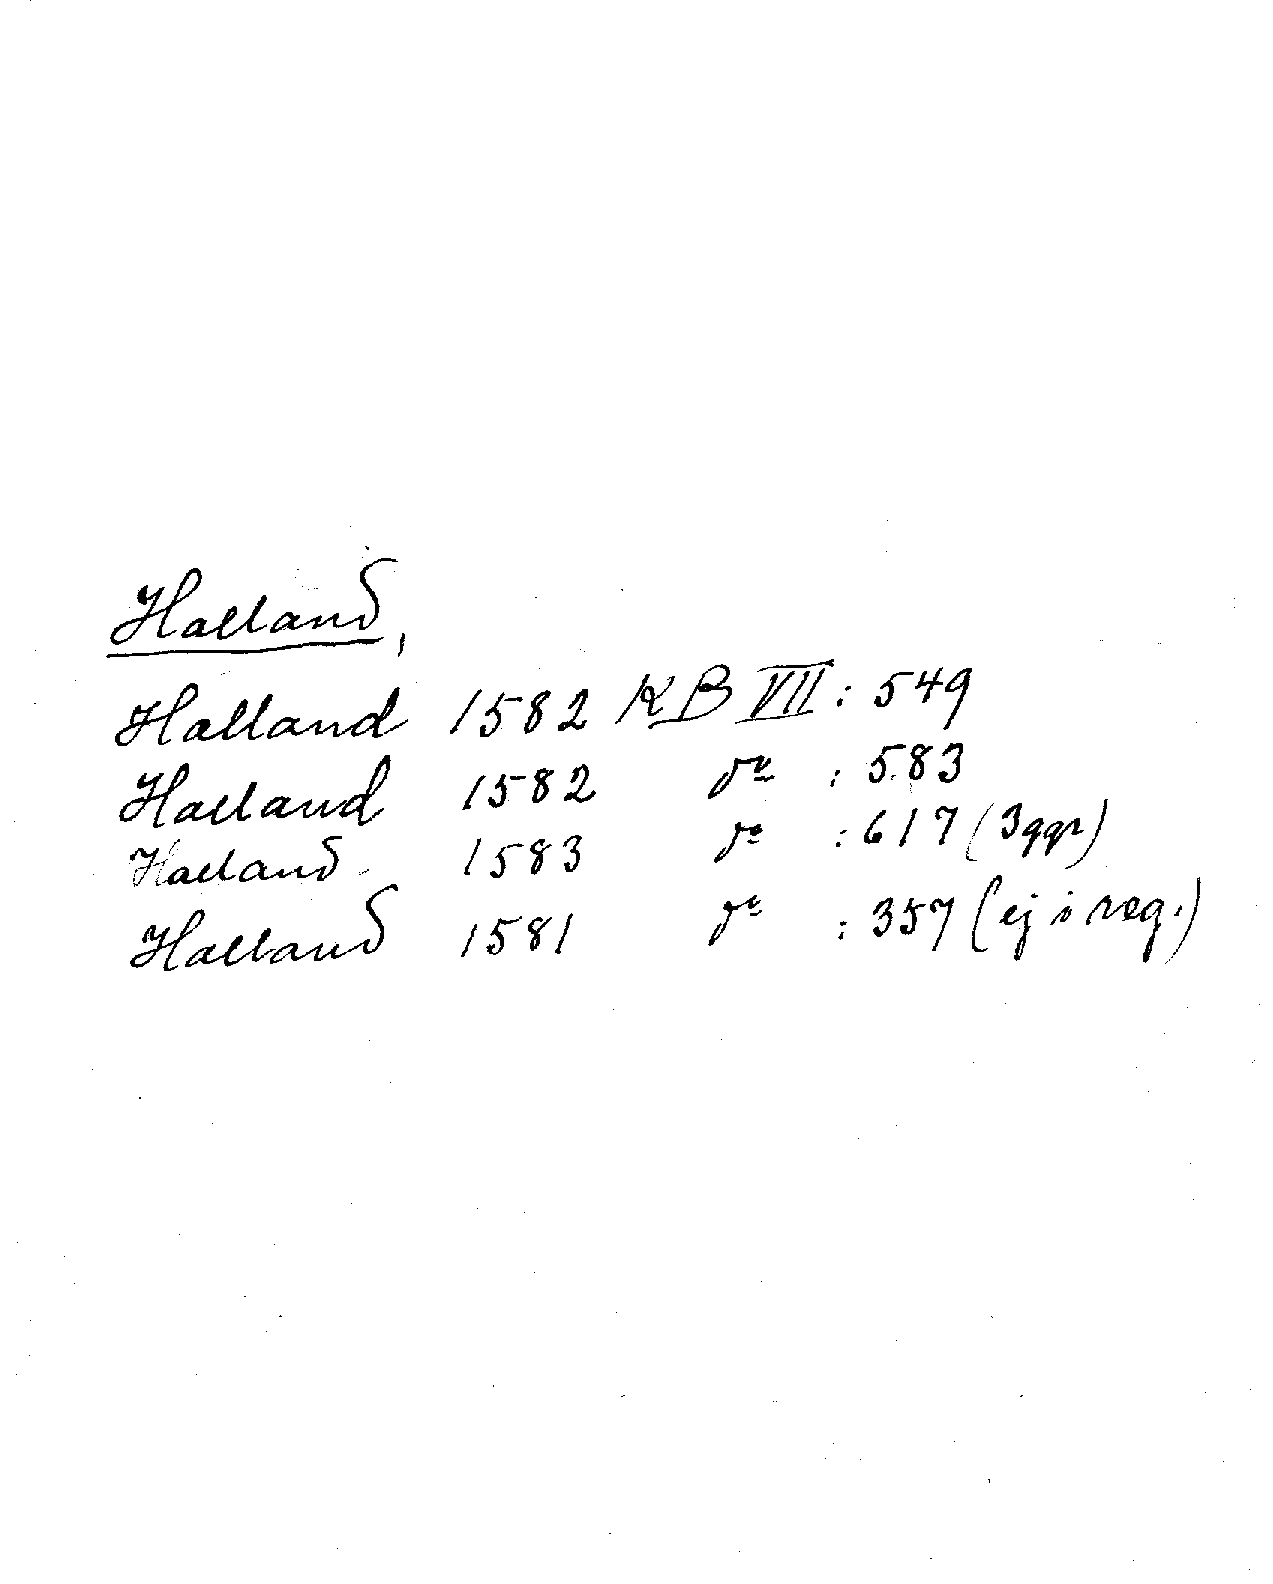 Halland,
Halland 1582 KB VII : 549
Halland 1582 do : 583
Halland 1583 do : 617 (3 ggr)
Halland 1581 do : 357 (ej i reg.)